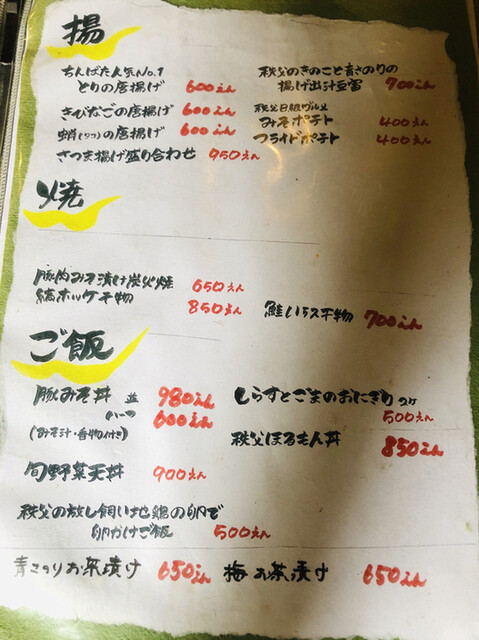 揚
ちんばた人気No.1
とりの唐揚げ 600えん
きびなごの唐揚げ 600えん
蛸(タコ)の唐揚げ 600えん
さつま揚げ盛り合わせ 950えん
秩父のきのこと青さのりの
揚げ出汁豆腐 700えん
秩父B級グルメ
みそポテト 400えん
フライドポテト 400えん
焼
豚肉みそ漬け炭火焼 650えん
縞ホッケ干物 850えん
鮭いらス干物 700えん
ご飯
豚みそ丼 並 980えん
ハーフ 600えん
(みそ汁・香物付き)
しらすとごまのおにぎり 2ケ
500えん
秩父ほるもん丼 850えん
旬野菜天丼 900えん
秩父の放し飼い地鶏の卵で
卵かけご飯 500えん
青さのりお茶漬け 650えん
梅お茶漬け 650えん